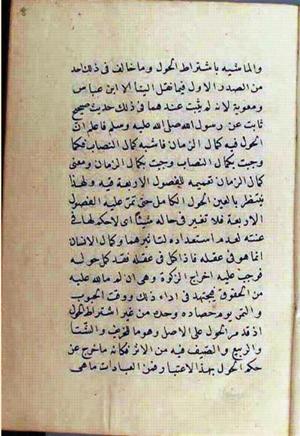 والماشية باشتراط الحول وما خالف في ذلك احد
من الصدر الاول فيما نقل الينا الا ابن عباس
ومعوية لانه لم يثبت عندهما في ذلك حديث صحيح
ثابت عن رسول الله صلى الله عليه وسلم فاعلم ان
الحول فيه كمال الزمان فاشبه كمال النصاب فكما
وجبت بكمال النصاب وجبت بكمال الزمان ومعنى
كمال الزمان تعميمه للفصول الاربعة فيه ولهذا
ينتظر بالعنين الحول كاملا حتى تمر عليه الفصول
الاربعة فلا تغير في حاله شيئا اى لا حكم لها في
عنته لعدم استعداده لتاثيرها وكمال الانسان
انما هو في عقله فاذا كمل في عقله فقد كمل حوله
فوجب عليه اخراج الزكوة وهي ان لله عليه
من الحقوق فيجتهد في اداء ذلك ووقت الحبوب
والتمر يوم حصاده وجده من غير اشتراط الحول
اذ قد مر الحول على الاصل وهو ما للخريف والشتا
والربيع والصيف فيه من الاثر فكانه ما خرج عن
حكم الحول بهذا الاعتبار فمن العبادات ما هي